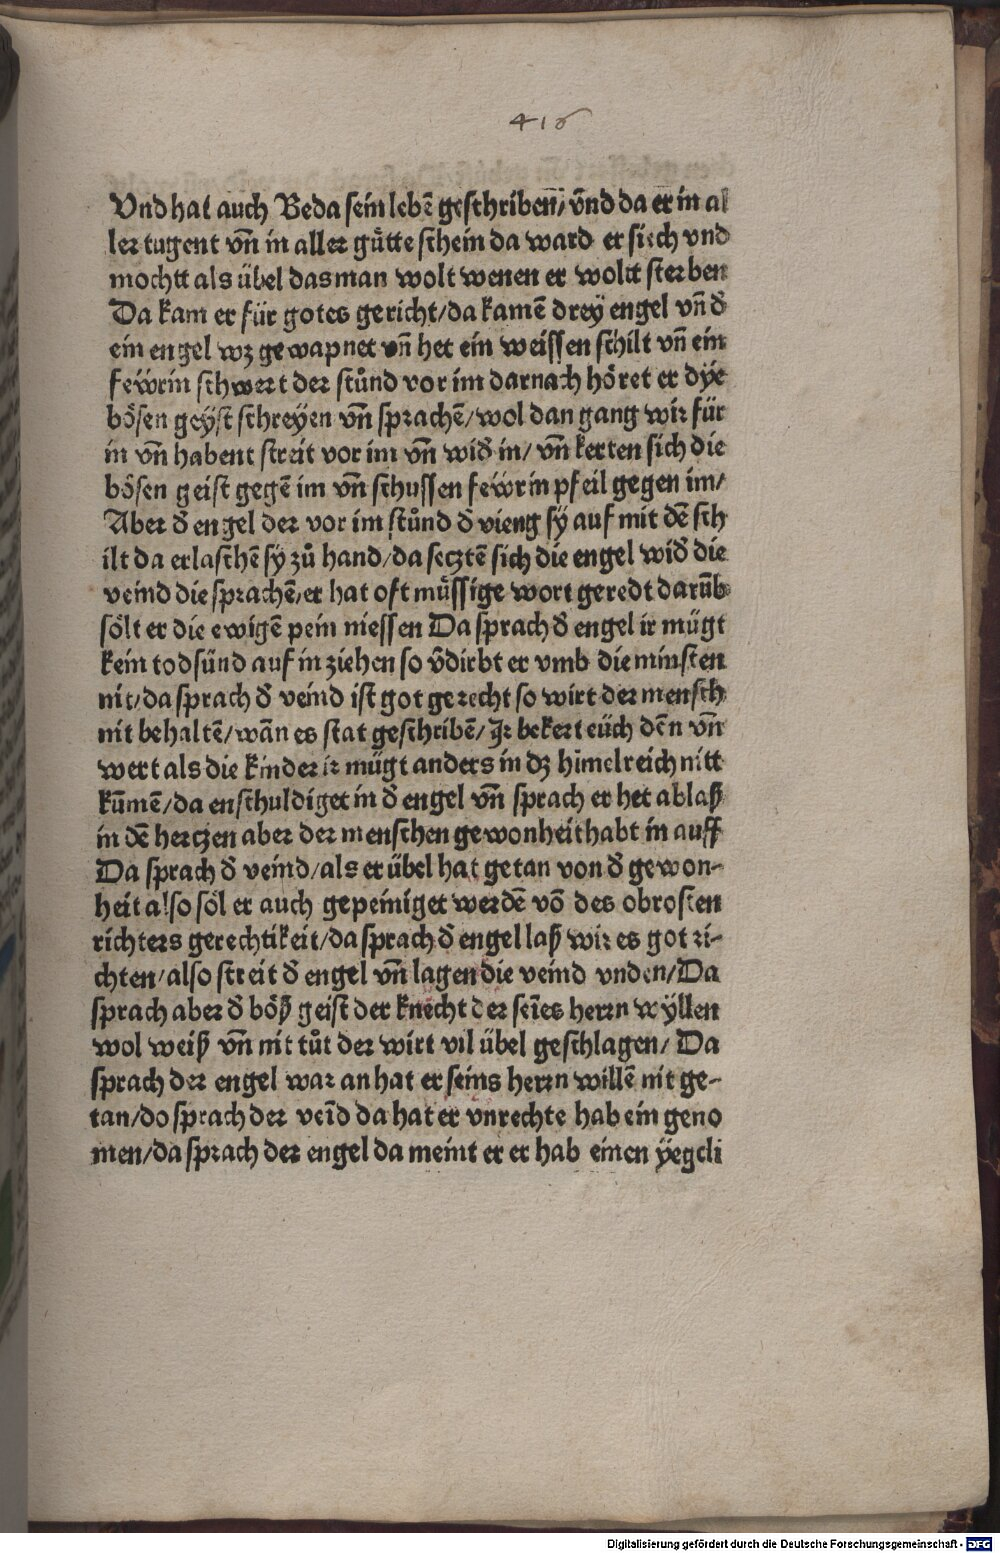 416
Vnd hat auch Beda sein lebē geschribenn̄/ v̄nd da er in al
ler tugent vn̄ in aller gůtte schein da ward er siech vnd
mochtt als übel das man wolt wenen er woltt sterben
Da kam er für gotes gericht/ da kamē drey engel vn̄ đ
ein engel wz gewapnet vn̄ het ein weissen schilt vn̄ ein
fewrin schwert der stůnd vor im darnach höret er dye
bösen geyst schreyen vn̄ sprachē/ wol dan gang wir für
in vn̄ habent streit vor im vn̄ wiđ in/ vn̄ kerten sich die
bösen geist gegē im vn̄ schussen fewrin pfeil gegen im/
Aber đ engel der vor im stůnd đ vieng sy auf mit dē sch
ilt da erlaschē sy zů hand/ da secztē sich die engel wiđ die
veind die sprachē/ er hat oft müssige wort geredt darūb
sölt er die ewigē pein niessen Da sprach đ engel ir mügt
kein todsünd auf in ziehen so v̄dirbt er vmb die minsten
nit/ da sprach đ veind ist got gerecht so wirt der mensch
nit behaltē/ wān es stat geschribē/ Ir bekert eüch dēn vn̄
wert als die kinder ir mügt anders in dz himelreich nitt
kūmē/ da enschuldiget in đ engel vn̄ sprach er het ablaß
in dē herczen aber der menschen gewonheit habt in auff
Da sprach đ veind/ als er übel hat getan von đ gewon-
heit also söl er auch gepeiniget werdē vō des obrosten
richters gerechtikeit/ da sprach đ engel laß wir es got ri-
chten/ also streit đ engel vn̄ lagen die veind vnden/ Da
sprach aber đ böß geist der knecht der seīes herrn wyllen
wol weiß vn̄ nit tůt der wirt vil übel geschlagen/ Da
sprach der engel war an hat er seins herrn willē nit ge-
tan/ do sprach der veīd da hat er vnrechte hab ein geno
men/ da sprach der engel da meint er er hab einen yegcli
Digitalisierung gefördert durch die Deutsche Forschungsgemeinschaft - DFG